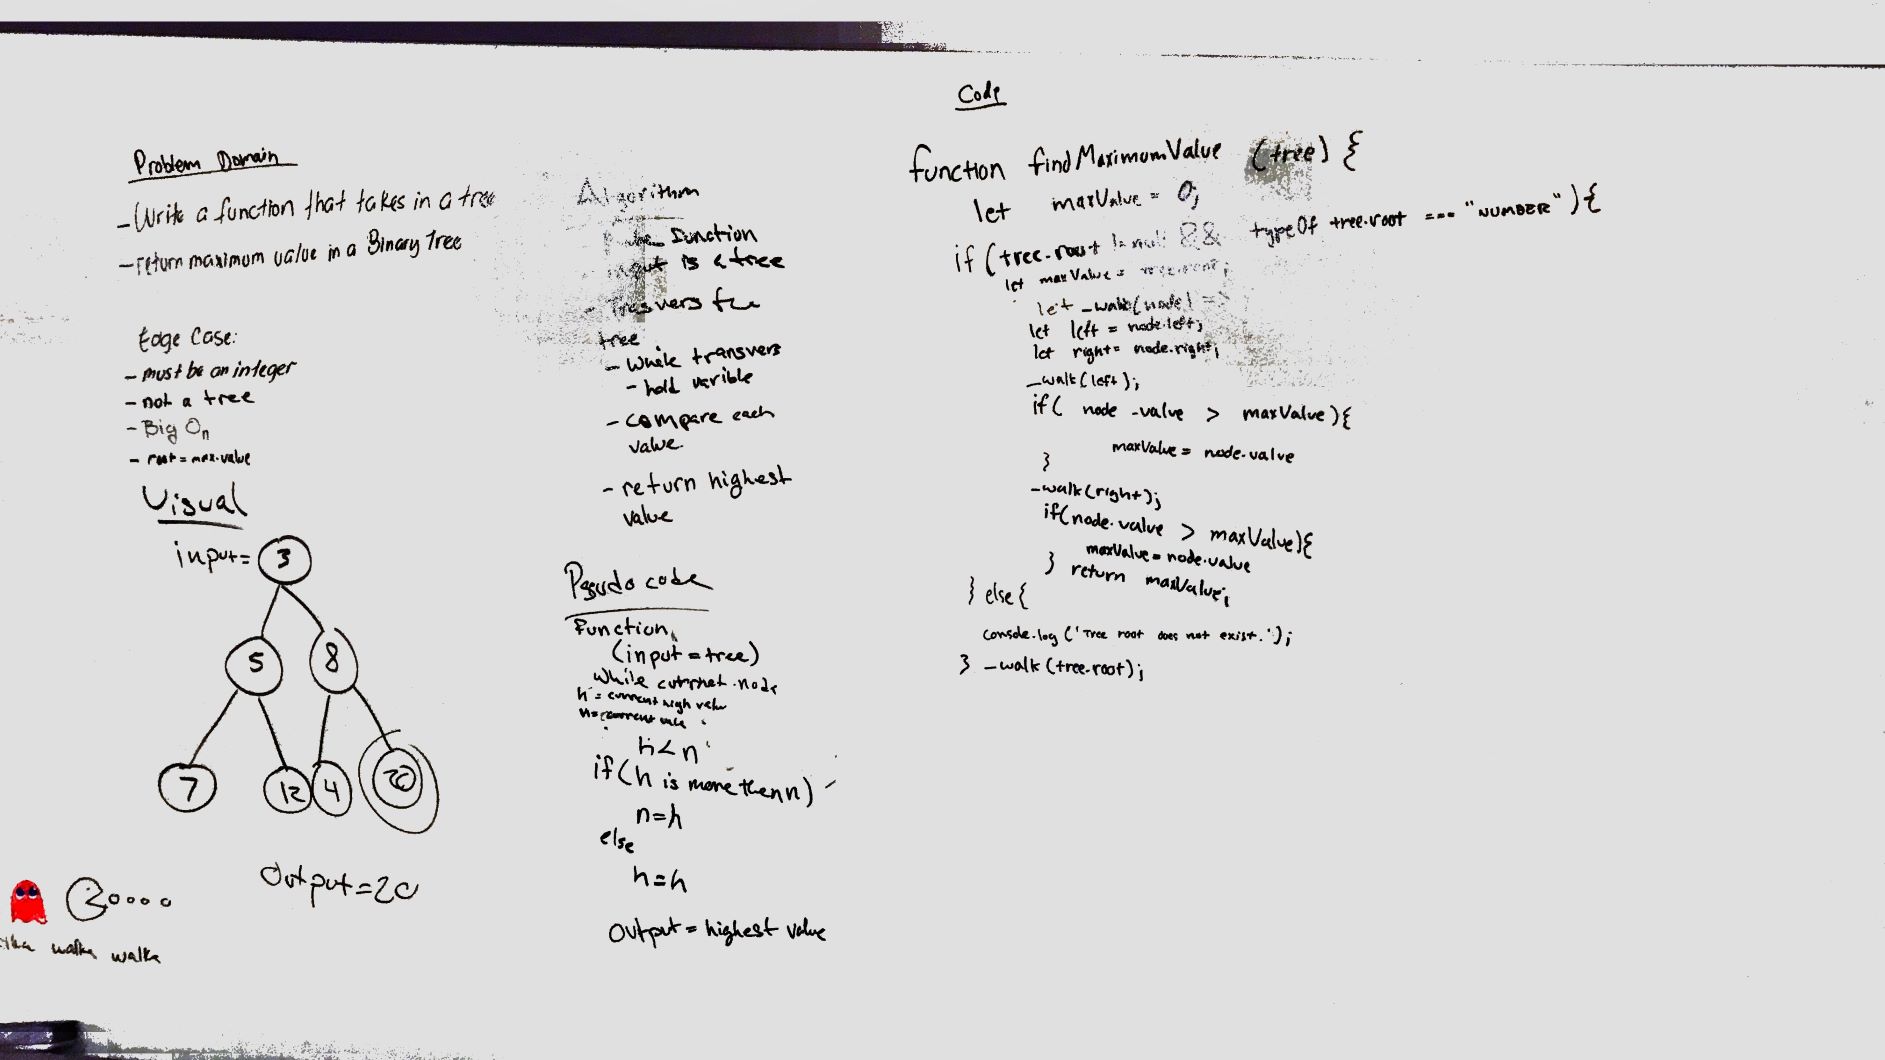 Problem Domain
- Write a function that takes in a tree
- return maximum value in a Binary Tree
Edge Case:
- must be an integer
- not a tree
- Big On
- root = max.value
Visual
input = 3
5 8
7 12 4 20
Output = 20
walka walka
Algorithm
function
input is a tree
- Trasvers
tree
- while transvers
- hold varible
- compare each
value.
- return highest
value
Pseudo code
Function
(input = tree)
while node
h = current high value
n = current value
h < n
if (h is more then n)
n = h
else
h = h
Output = highest value
Code
function findMaximumValue (tree) {
let maxValue = 0;
if (tree.root != null && typeOf tree.root === "NUMBER") {
let maxValue = tree.root;
let _walk(node) =>
let left = node.left;
let right = node.right;
_walk(left);
if( node .value > maxValue){
maxValue = node.value
}
_walk(right);
if(node.value > maxValue){
maxValue = node.value
} return maxValue;
} else {
console.log ('Tree root does not exist.');
} _walk(tree.root);